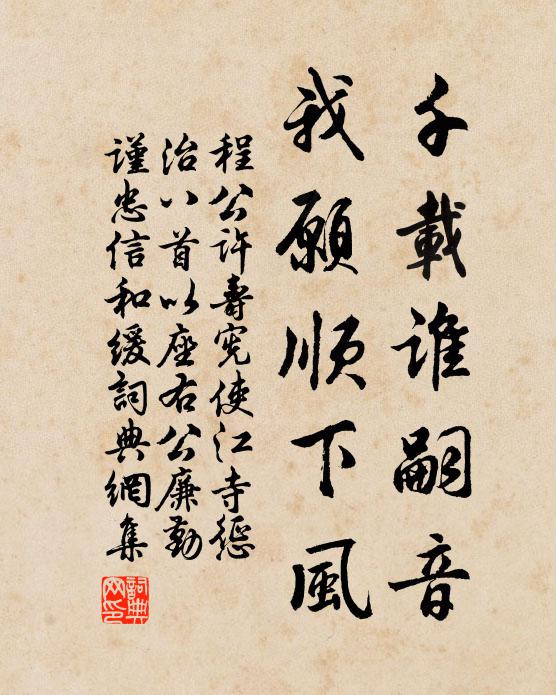 千載誰嗣音
我願順下風
程公許壽憲使江寺丞
治八首以座右公廉勤
謹忠信和緩詞典網集
詞典網印